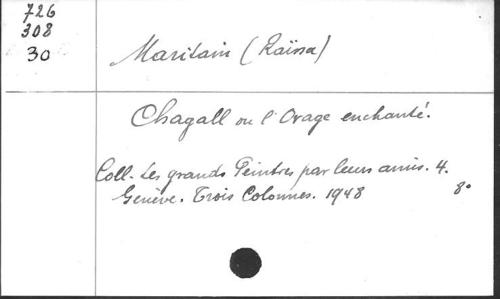 726
308
30
Maritain (Raïssa)
Chagall ou l'Orage enchanté.
Coll. Les grands Peintres par leurs amis. 4.
Genève. Trois Colonnes. 1948
8°